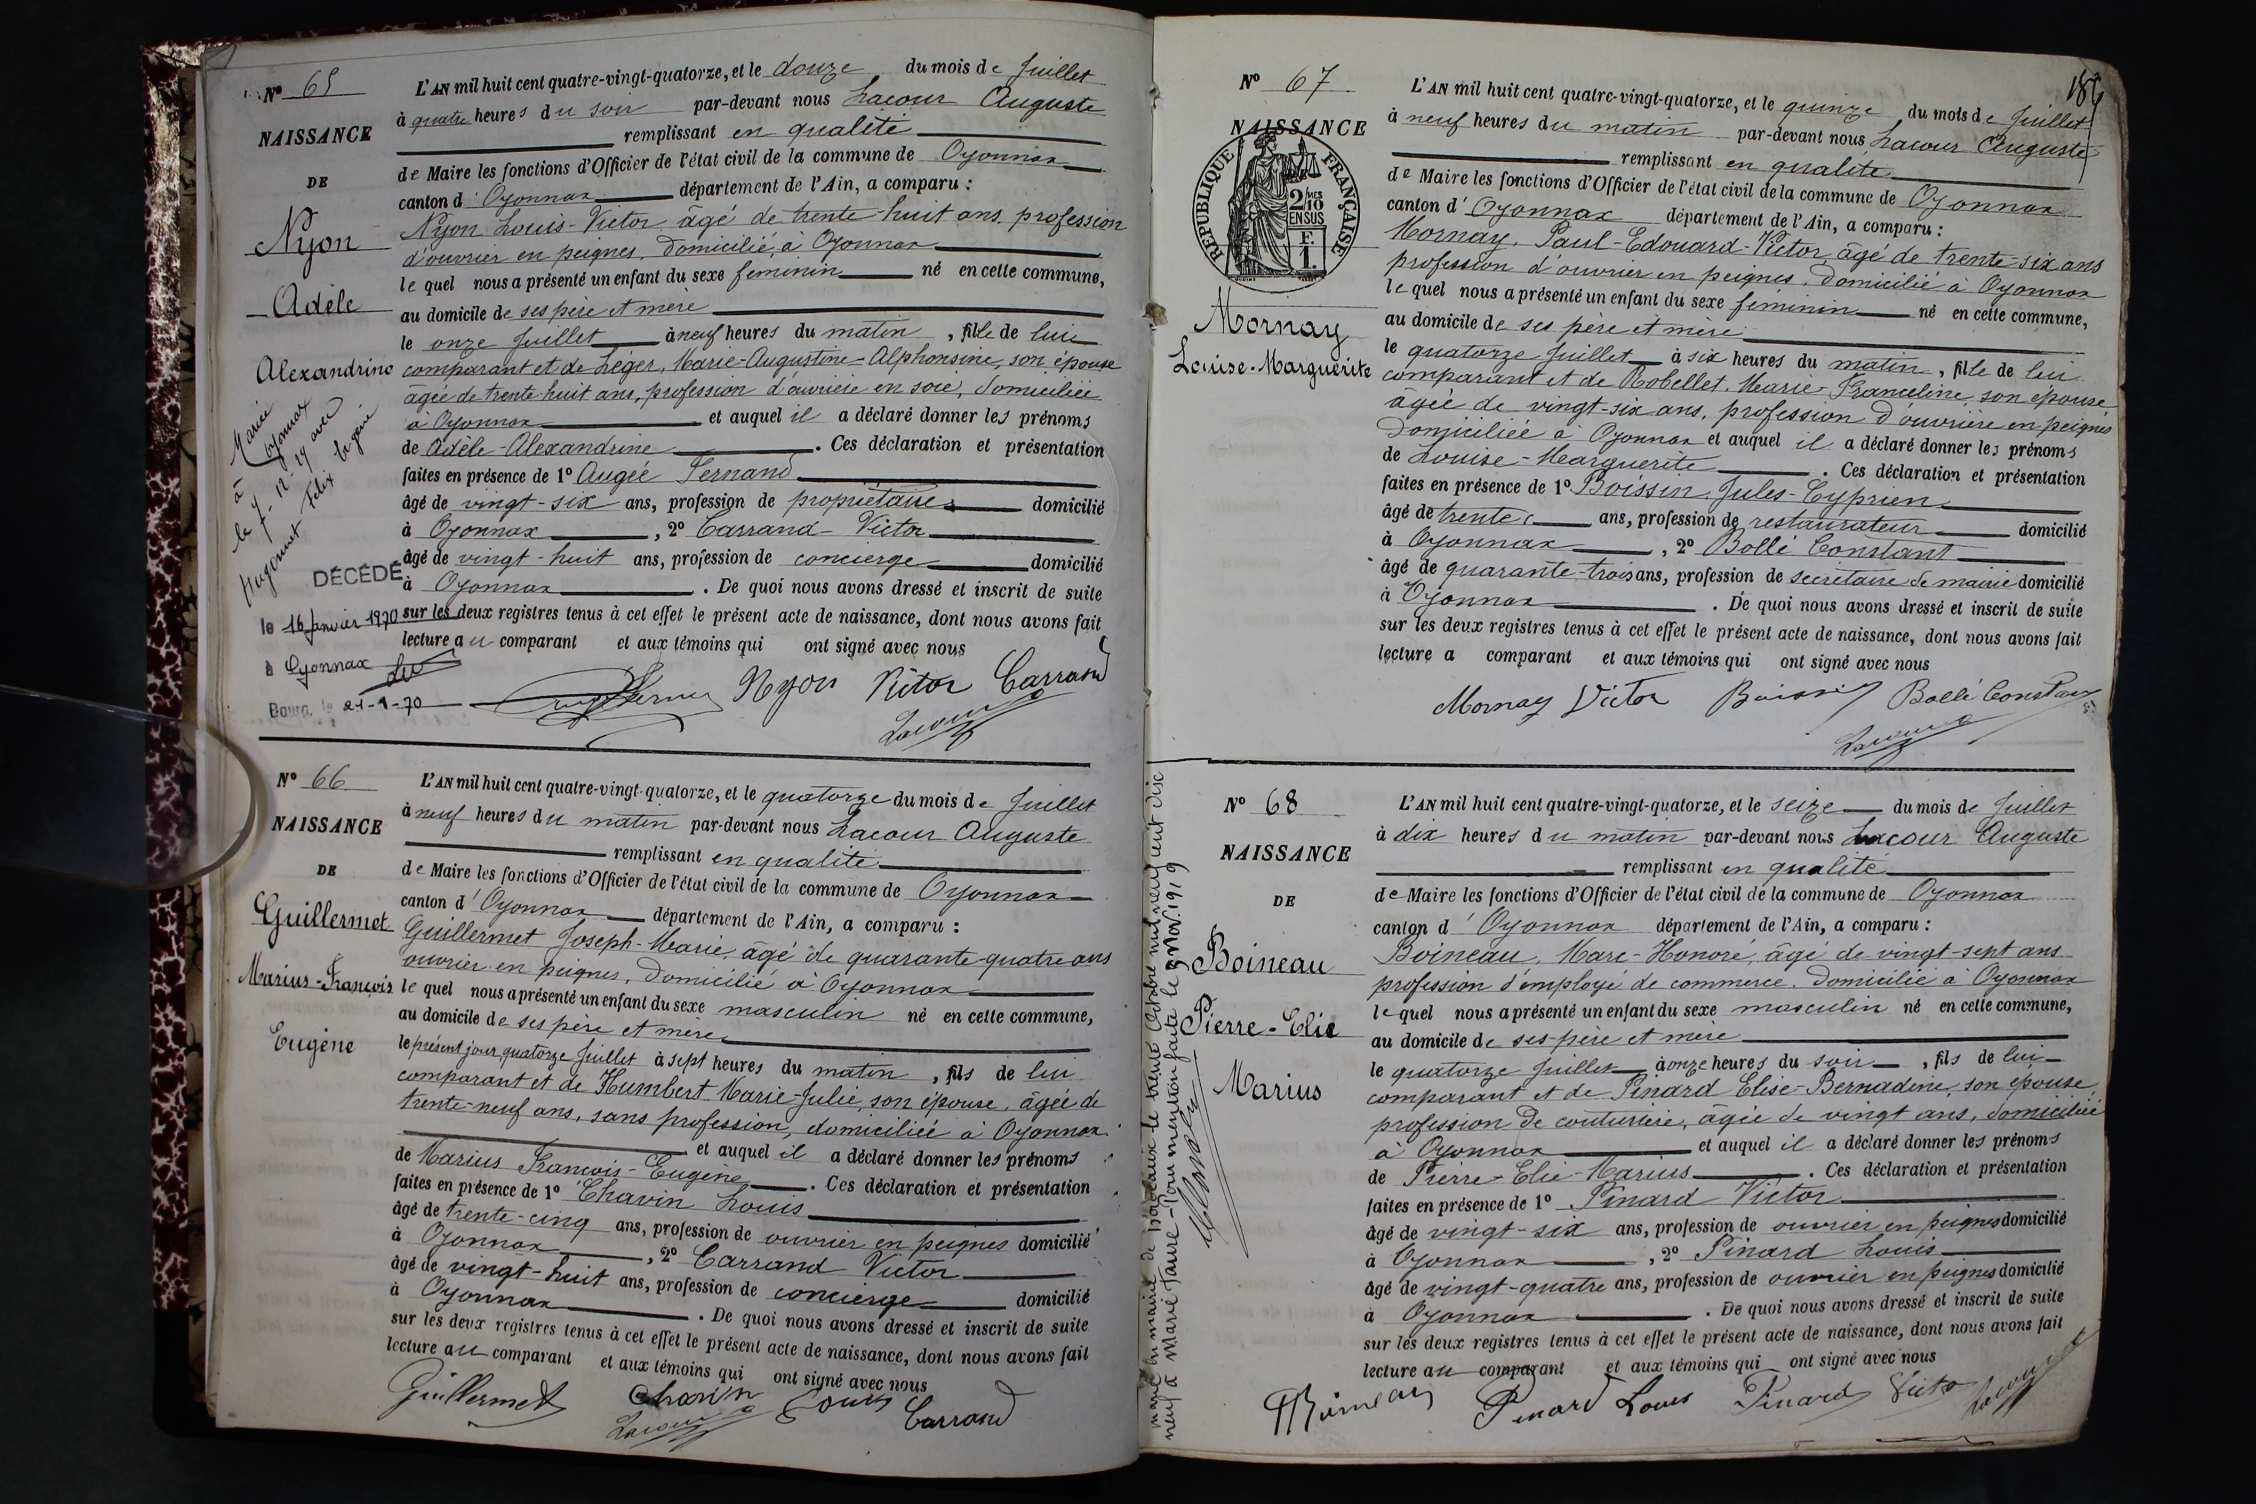 Nº 65
NAISSANCE
DE
Nyon
Adèle
Alexandrine
Marié
à Oyonnax
le 7-12-19 avec
Hugonnet Félix Eugène
DÉCÉDÉ
le 16 Janvier 1970
à Oyonnax
21-1-70
L'AN mil huit cent quatre-vingt-quatorze, et le douze du mois de Juillet
à quatre heures du soir par-devant nous Lacour Auguste
remplissant en qualité
de Maire les fonctions d'Officier de l'état civil de la commune de Oyonnax
canton d'Oyonnax département de l'Ain, a comparu :
Nyon Louis-Victor âgé de trente-huit ans, profession
d'ouvrier en peignes, domicilié à Oyonnax
lequel nous a présenté un enfant du sexe féminin né en cette commune,
au domicile de ses père et mère
le onze Juillet à neuf heures du matin, fille de lui
comparant et de Léger, Marie-Augustine-Alphonsine, son épouse
âgée de trente-huit ans, profession d'ouvrière en soie, domiciliée
à Oyonnax et auquel il a déclaré donner les prénoms
de Adèle-Alexandrine. Ces déclaration et présentation
faites en présence de 1º Augée Fernand
âgé de vingt-six ans, profession de propriétaire domicilié
à Oyonnax, 2º Carrand Victor
âgé de vingt-huit ans, profession de concierge domicilié
à Oyonnax. De quoi nous avons dressé et inscrit de suite
sur les deux registres tenus à cet effet le présent acte de naissance, dont nous avons fait
lecture au comparant et aux témoins qui ont signé avec nous
Nyon Victor Carrand
Lacour
Nº 66
NAISSANCE
DE
Guillermet
Marius-François
Eugène
L'AN mil huit cent quatre-vingt-quatorze, et le quatorze du mois de Juillet
à neuf heures du matin par-devant nous Lacour Auguste
remplissant en qualité
de Maire les fonctions d'Officier de l'état civil de la commune de Oyonnax
canton d'Oyonnax département de l'Ain, a comparu :
Guillermet Joseph-Marie, âgé de quarante-quatre ans
ouvrier en peignes, domicilié à Oyonnax
lequel nous a présenté un enfant du sexe masculin né en cette commune,
au domicile de ses père et mère
le présent jour, quatorze Juillet à sept heures du matin, fils de lui
comparant et de Humbert Marie-Julie, son épouse, âgée de
trente-neuf ans, sans profession, domiciliée à Oyonnax
et auquel il a déclaré donner les prénoms
de Marius François-Eugène. Ces déclaration et présentation
faites en présence de 1º Chavin Louis
âgé de trente-cinq ans, profession de ouvrier en peignes domicilié
à Oyonnax, 2º Carrand Victor
âgé de vingt-huit ans, profession de concierge domicilié
à Oyonnax. De quoi nous avons dressé et inscrit de suite
sur les deux registres tenus à cet effet le présent acte de naissance, dont nous avons fait
lecture au comparant et aux témoins qui ont signé avec nous
Guillermet Chavin Louis Carrand
Lacour
Nº 67
NAISSANCE
RÉPUBLIQUE FRANÇAISE
2/10 MES
EN SUS
F.
1.
Mornay
Louise-Marguerite
L'AN mil huit cent quatre-vingt-quatorze, et le quinze du mois de Juillet
à neuf heures du matin par-devant nous Lacour Auguste
remplissant en qualité
de Maire les fonctions d'Officier de l'état civil de la commune de Oyonnax
canton d'Oyonnax département de l'Ain, a comparu :
Mornay, Paul-Edouard-Victor, âgé de trente-six ans
profession d'ouvrier en peignes, domicilié à Oyonnax
lequel nous a présenté un enfant du sexe féminin né en cette commune,
au domicile de ses père et mère
le quatorze Juillet à six heures du matin, fille de lui
comparant et de Robellet, Marie-Franceline, son épouse
âgée de vingt-six ans, profession d'ouvrière en peignes
domiciliée à Oyonnax et auquel il a déclaré donner les prénoms
de Louise-Marguerite. Ces déclaration et présentation
faites en présence de 1º Boissin, Jules-Cyprien
âgé de trente ans, profession de restaurateur domicilié
à Oyonnax, 2º Bollé Constant
âgé de quarante-trois ans, profession de secrétaire de mairie domicilié
à Oyonnax. De quoi nous avons dressé et inscrit de suite
sur les deux registres tenus à cet effet le présent acte de naissance, dont nous avons fait
lecture a comparant et aux témoins qui ont signé avec nous
Mornay Victor Boissin Bollé Constant
Lacour
Nº 68
NAISSANCE
DE
Boineau
Pierre-Elie
Marius
Marié en mairie de Bordeaux le trente Octobre mil neuf cent dix
neuf à Marie Faure - Pour mention faite le 9 Nov. 1919
L'AN mil huit cent quatre-vingt-quatorze, et le seize du mois de Juillet
à dix heures du matin par-devant nous Lacour Auguste
remplissant en qualité
de Maire les fonctions d'Officier de l'état civil de la commune de Oyonnax
canton d'Oyonnax département de l'Ain, a comparu :
Boineau, Marc-Honoré, âgé de vingt-sept ans
profession d'employé de commerce, domicilié à Oyonnax
lequel nous a présenté un enfant du sexe masculin né en cette commune,
au domicile de ses père et mère
le quatorze Juillet à onze heures du soir, fils de lui
comparant et de Pinard Elise-Bernadine, son épouse,
profession de couturière, âgée de vingt ans, domiciliée
à Oyonnax et auquel il a déclaré donner les prénoms
de Pierre-Elie-Marius. Ces déclaration et présentation
faites en présence de 1º Pinard Victor
âgé de vingt-six ans, profession de ouvrier en peignes domicilié
à Oyonnax, 2º Pinard Louis
âgé de vingt-quatre ans, profession de ouvrier en peignes domicilié
à Oyonnax. De quoi nous avons dressé et inscrit de suite
sur les deux registres tenus à cet effet le présent acte de naissance, dont nous avons fait
lecture au comparant et aux témoins qui ont signé avec nous
Boineau Pinard Louis Pinard Victor Lacour